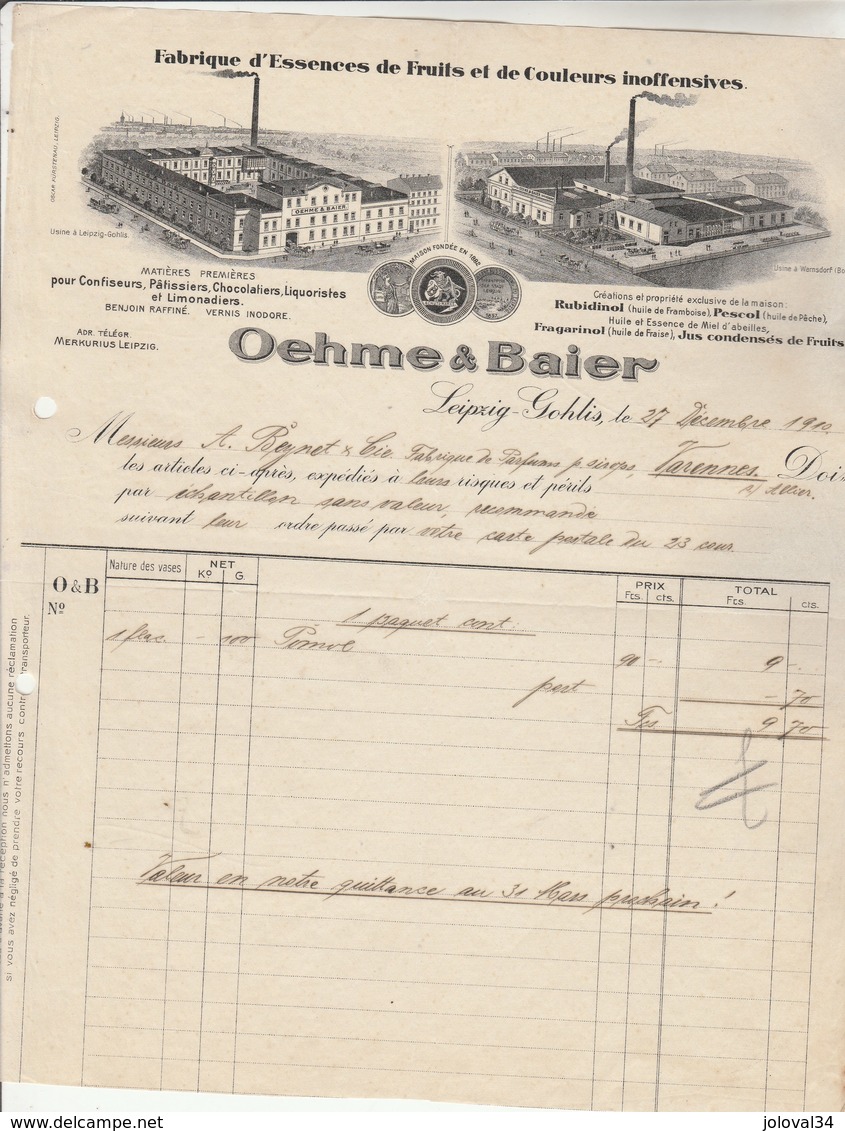 Fabrique d'Essences de Fruits et de Couleurs inoffensives.
OSCAR FÜRSTENAU, LEIPZIG.
OEHME & BAIER
Usine à Leipzig-Gohlis.
Usine à Warnsdorf (Bo
MAISON FONDÉE EN 1882
1897
MATIÈRES PREMIÈRES
pour Confiseurs, Pâtissiers, Chocolatiers, Liquoristes
et Limonadiers.
BENJOIN RAFFINÉ. VERNIS INODORE.
ADR. TÉLÉGR.
MERKURIUS LEIPZIG.
Créations et propriété exclusive de la maison:
Rubidinol (huile de Framboise), Pescol (huile de Pêche),
Huile et Essence de Miel d'abeilles,
Fragarinol (huile de Fraise), Jus condensés de Fruits
Oehme & Baier
Leipzig-Gohlis, le 27 Décembre 1910
Messieurs A. Beynet & Cie. Fabrique de Parfums p. sirops, Varennes. Doi
s/ Allier.
les articles ci-après, expédiés à leurs risques et périls
par échantillon sans valeur, recommande
suivant leur ordre passé par votre carte postale du 23 cour.
O & B
Nº
Nature des vases NET Kº G. PRIX Fcs. cts. TOTAL Fcs. cts.
1 paquet cont:
1 flac. - 100 90 - 9 -
port - 70
Fcs. 9 70
Valeur en notre quittance au 31 Mars prochain!
à la réception nous n'admettons aucune réclamation
si vous avez négligé de prendre votre recours contre transporteur.
joloval34